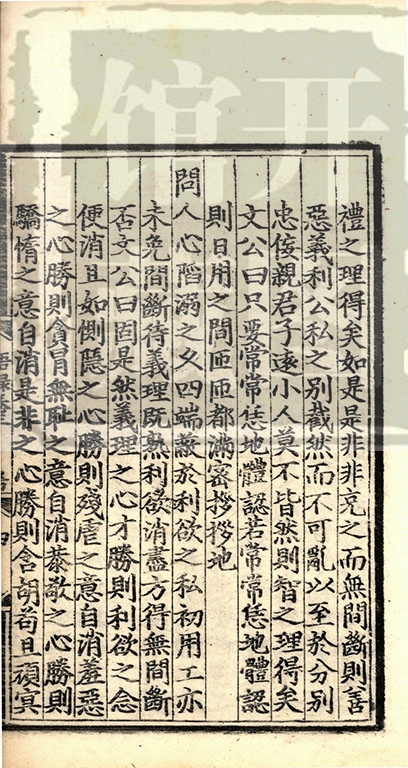 禮之理得矣如是是非非充之而無間斷則善
惡義利公私之別截然而不可亂以至於分別
忠佞親君子遠小人莫不皆然則智之理得矣
文公曰只要常常恁地體認若常常恁地體認
則日用之間匝匝都滿密拶拶地
問人心陷溺之久四端蔽於利欲之私初用工亦
未免間斷待義理既熟利欲消盡方得無間斷
否文公曰固是然義理之心才勝則利欲之念
便消且如惻隱之心勝則殘虐之意自消羞惡
之心勝則貪冒無恥之意自消恭敬之心勝則
驕惰之意自消是非之心勝則含胡苟且頑冥
开
馆